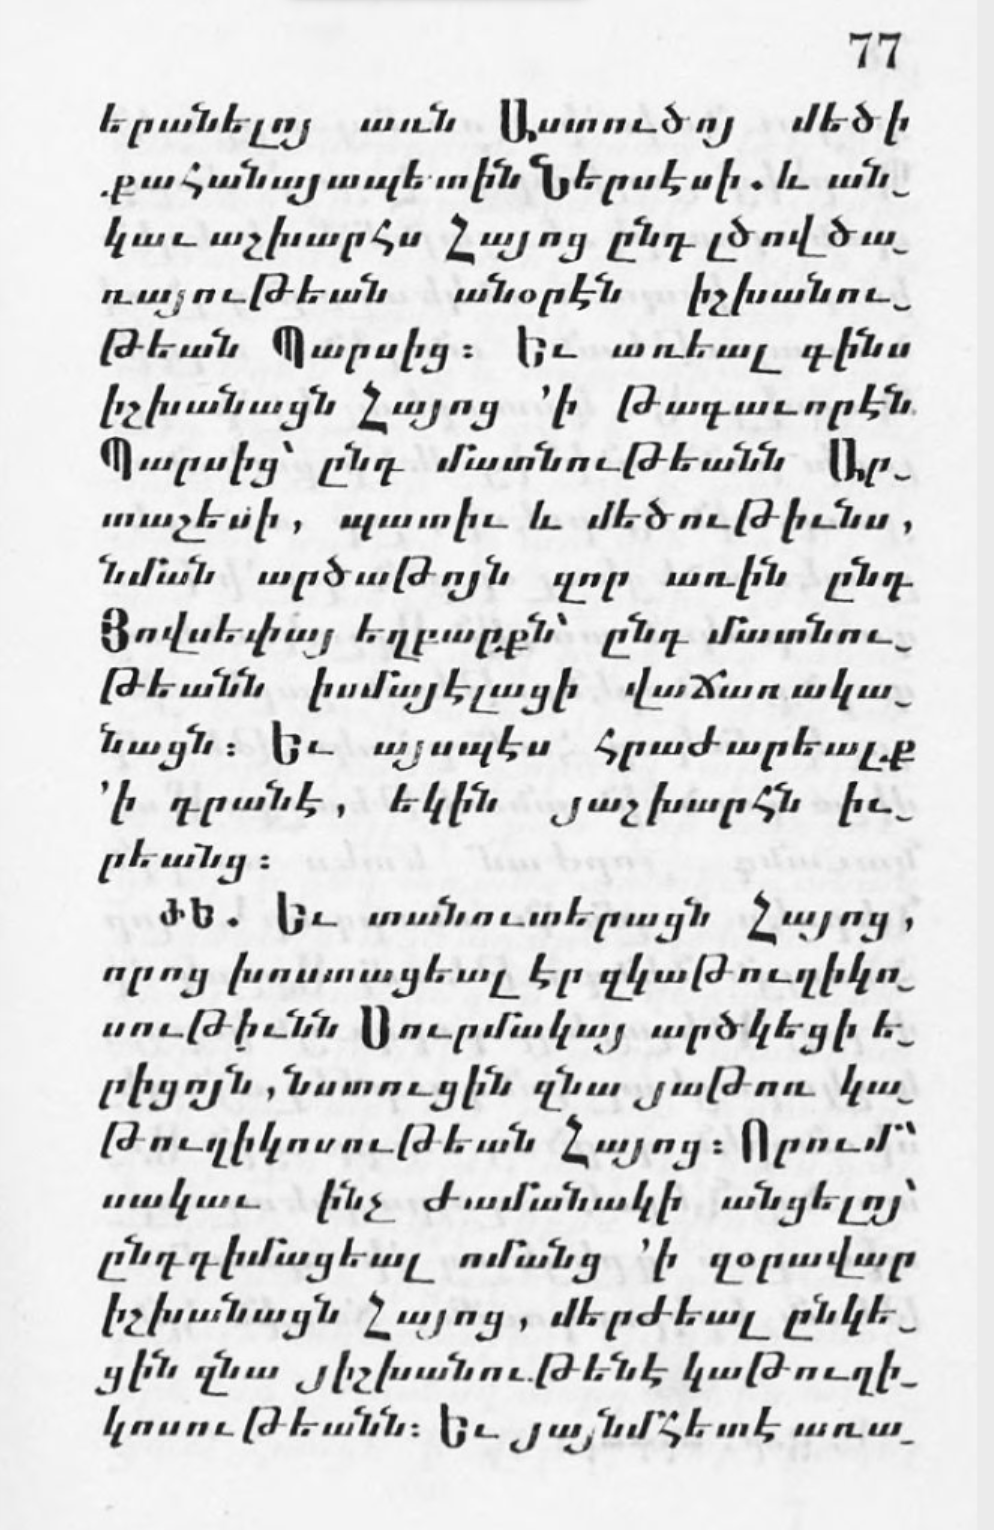 77
երանելոյ առն Աստուծոյ մեծի
քահանայապետին Ներսէսի. և ան֊
կաւ աշխարհս Հայոց ընդ լծով ծա֊
ռայութեան անօրէն իշխանու֊
թեան Պարսից։ Եւ առեալ գինս
իշխանացն Հայոց ՚ի թագաւորէն
Պարսից՝ ընդ մատնութեանն Ար֊
տաշեսի, պատիւ և մեծութիւնս,
նման արծաթոյն զոր առին ընդ
Յովսեփայ եղբարքն՝ ընդ մատնու֊
թեանն իսմայէլացի վաճառակա֊
նացն։ Եւ այսպէս հրաժարեալք
՚ի դրանէ, եկին յաշխարհն իւ֊
րեանց։
ԺԵ. Եւ տանուտերացն Հայոց,
որոց խոստացեալ էր զկաթուղիկո֊
սութիւնն Սուրմակայ արծկեցի ե֊
րիցոյն, նստուցին զնա յաթոռ կա֊
թուղիկոսութեան Հայոց։ Որում՝
սակաւ ինչ ժամանակի անցելոյ՝
ընդդիմացեալ ոմանց ՚ի զօրավար
իշխանացն Հայոց, մերժեալ ընկե֊
ցին զնա յիշխանութենէ կաթուղի֊
կոսութեանն։ Եւ յայնմհետէ առա֊